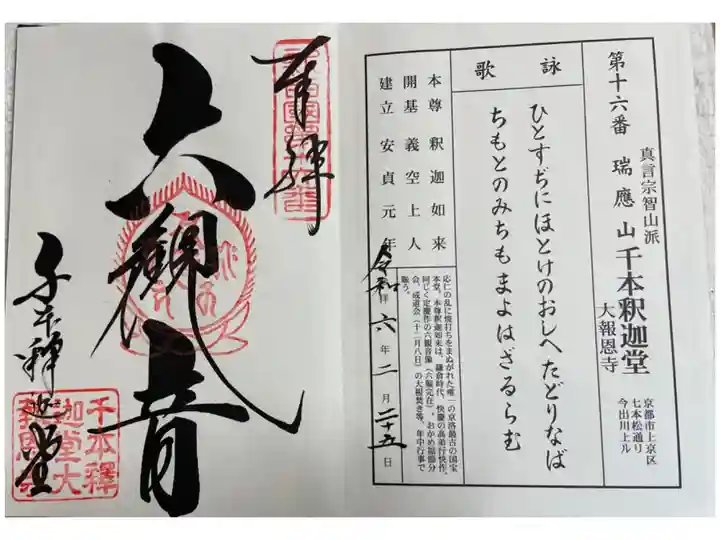 第十六番
真言宗智山派
瑞應山千本釈迦堂
大報恩寺
京都市上京区
七本松通り
今出川上ル
詠歌
ひとすぢにほとけのおしへたどりなば
ちもとのみちもまよはざるらむ
本尊 釈迦如来
開基 義空上人
建立 安貞元年
応仁の乱に焼打ちをまぬがれた唯一の京洛最古の国宝
本堂。本尊釈迦如来は、鎌倉時代、快慶の高弟行快作。
同じく定慶作の六観音像(六軀完在)、おかめ福節分
会、成道会(十二月八日)の大根焚き等、年中行事で
賑う。
令和六年二月二十五日
奉拝
六観音
千本釋迦堂
千本釋
迦堂大
報恩寺